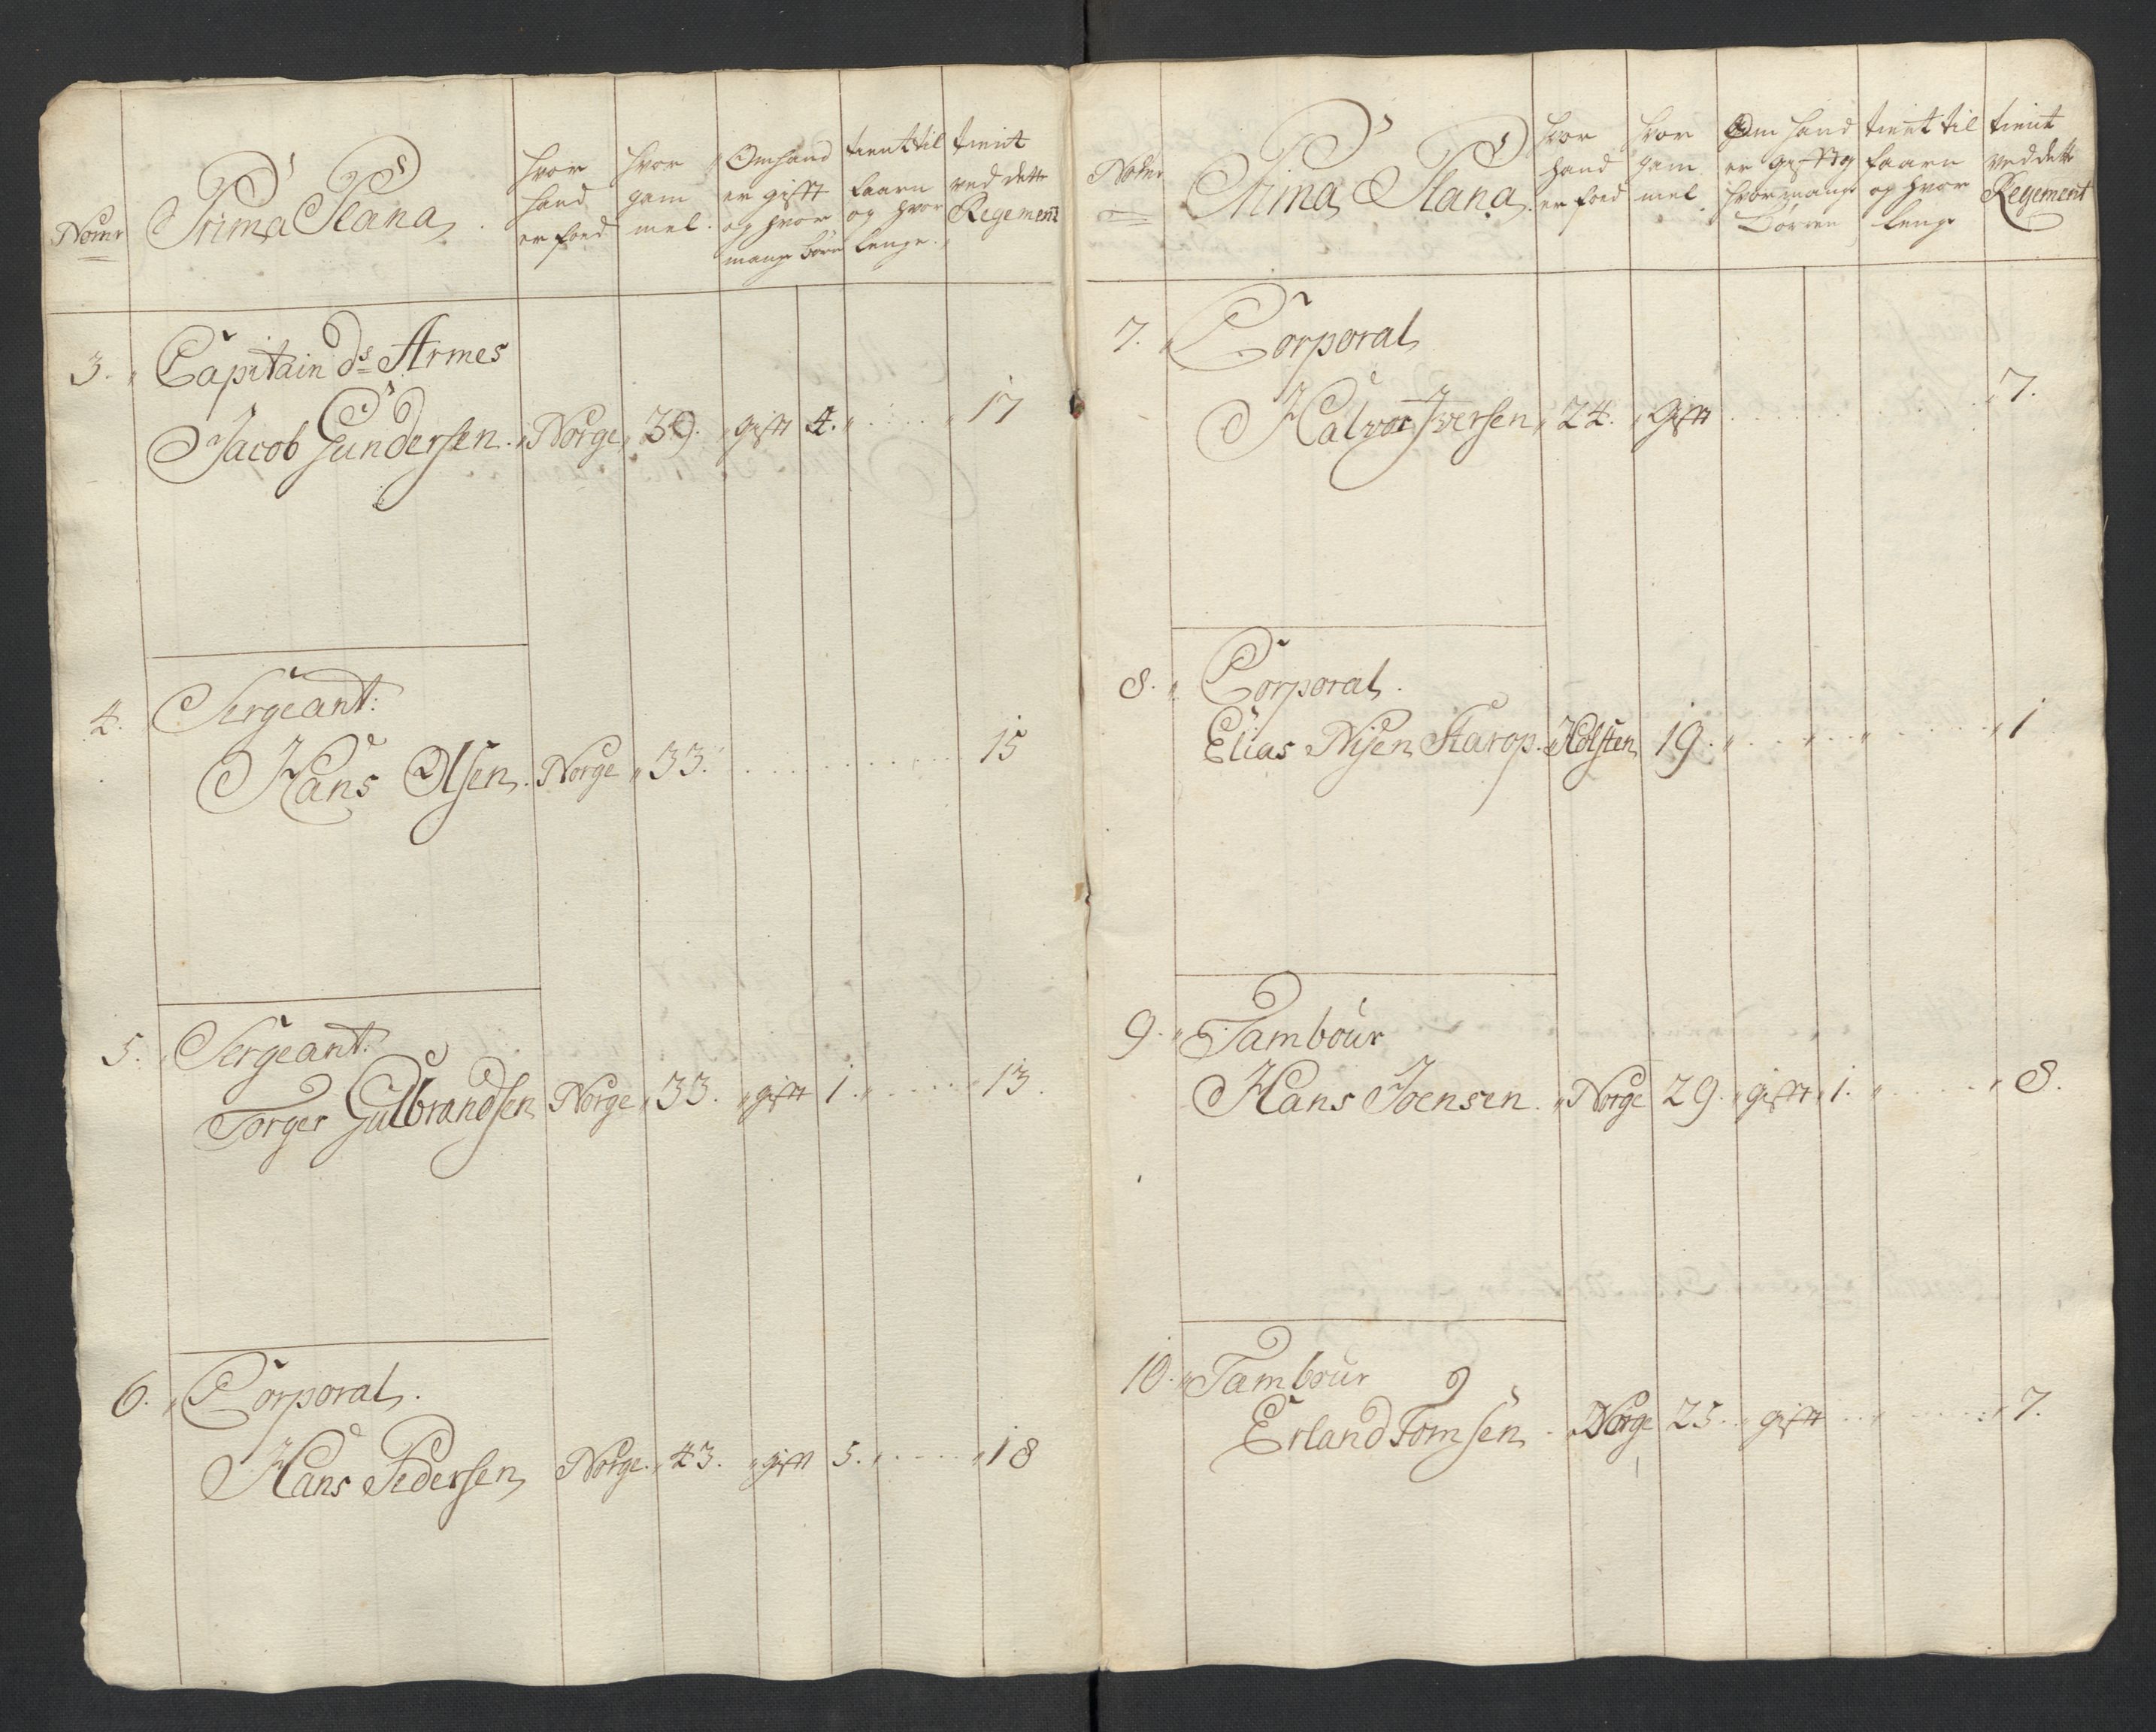 Nomr
Prima Plana
hvor
hand
er föed
hvor
gam
mel.
Om hand
er gifft
og hvor
mange börn
tient til
faarn
og hvor
lenge.
tient
ved dette
Regement
3. Capitain ds Armes
Jacob Gundersen. Norge 39. gift 4. 17
4. Sergeant:
Hans Olsen. Norge 33. 15
5. Sergeant:
Torger Gulbrandsen Norge 33. gift 1. 13.
6. Corporal.
Hans Pedersen Norge. 43. gift 5. 18
Nomr
Prima Plana.
hvor
hand
er föed
hvor
gam
mel
Om hand
er gifft og
hvor mange
Börnen
tient til
faarn
og hvor
lenge
tient
ved dette
Regement
7. Corporal
Halvor Iversen 24. Gift 7.
8. Corporal.
Elias Nisen Starop. Holsten 19. 1
9. Tambour
Hans Joensen. Norge 29. gift 1. 8.
10. Tambour
Erland Tomsen. Norge 25. gift 7.